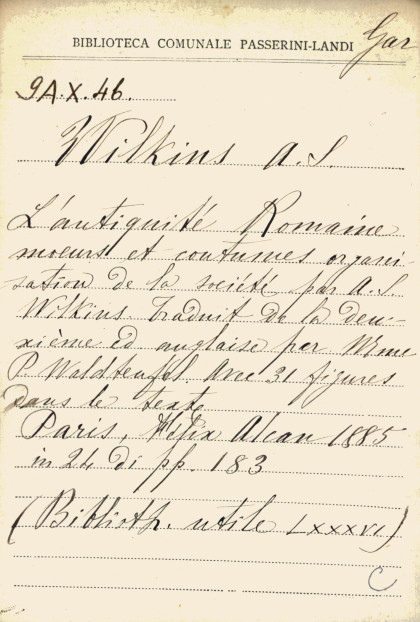 BIBLIOTECA COMUNALE PASSERINI-LANDI
Gar
9A.X.46.
Wilkins A.S.
L'antiquité Romaine
moeurs et coutumes organi-
sation de la société par A.S.
Wilkins. Traduit de la deu-
xième ed anglaise par Mme
P. Waldteuffel. Avec 31 figures
dans le texte
Paris, Félix Alcan 1885
in 24 di pp. 183
(Biblioth. utile LXXXVI)
C